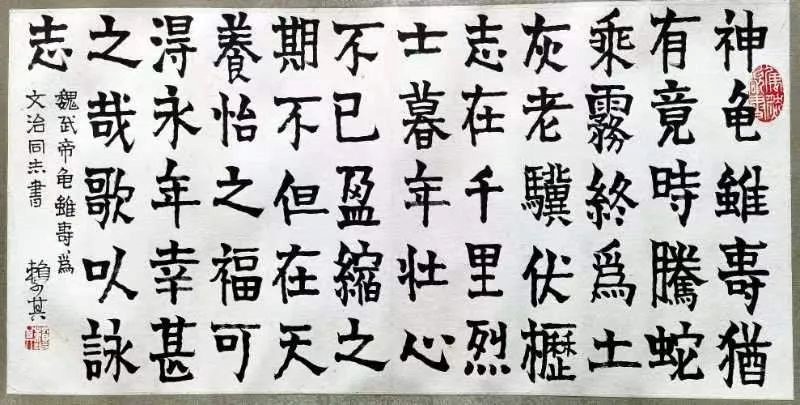 神龟雖壽猶
有竟時騰蛇
乘霧終爲土
灰老驥伏櫪
志在千里烈
士暮年壯心
不已盈縮之
期不但在天
養怡之福可
得永年幸甚
之哉歌以詠
志
魏武帝龟雖壽爲
文治同志書
賴少其